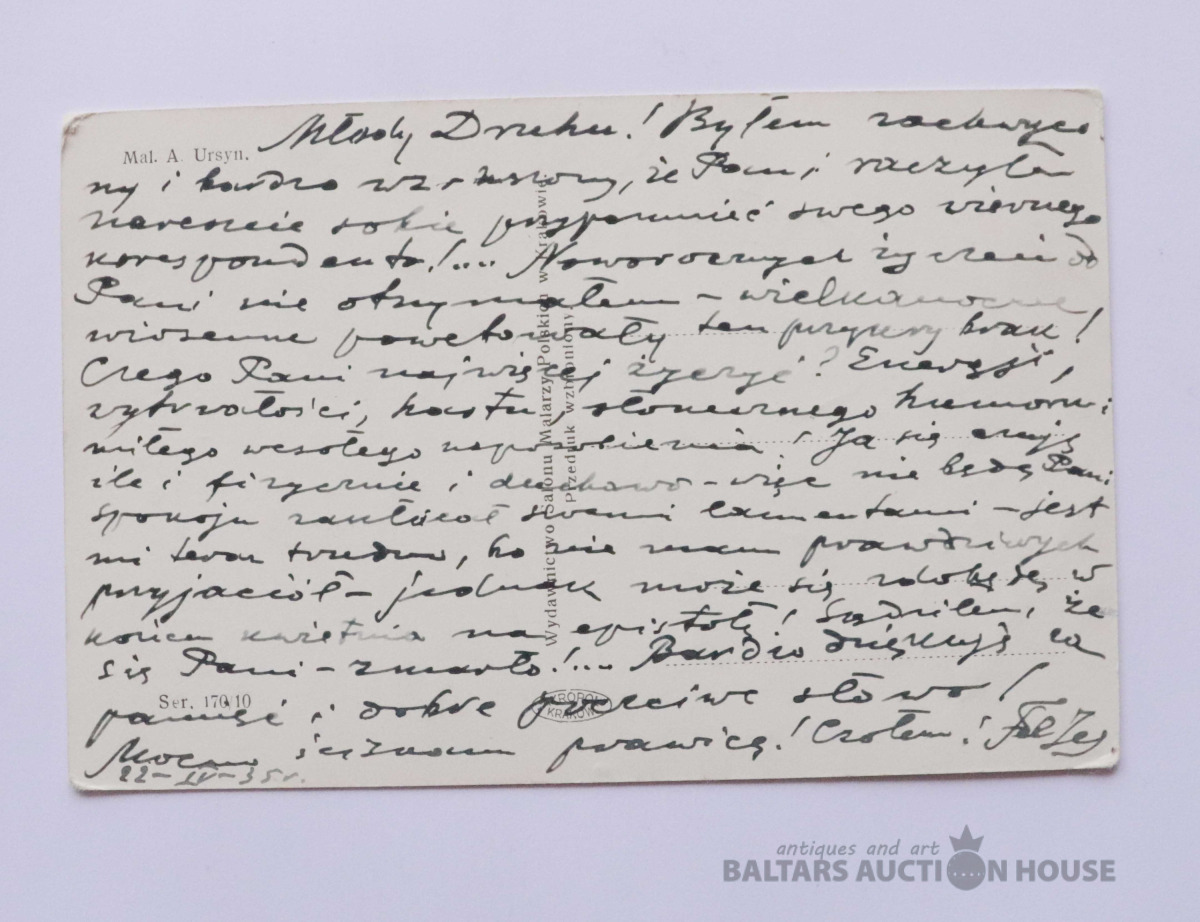 Mal. A. Ursyn.
Młody Druhu! Byłem zachwyco
ny i bardzo wzruszony, że Pani raczyła
nareszcie sobie przypomnieć swego wiernego
korespondenta!.... Noworocznych życzeń od
Pani nie otrzymałem – wielkanocne,
wiosenne powetowały ten przykry brak!
Czego Pani najwięcej życzyć? Energji,
wytrwałości, hartu, słonecznego humoru i
miłego wesołego usposobienia! Ja się czuję
źle i fizycznie i duchowo – więc nie będę Pani
spokoju zakłócał swemi lamentami – jest
mi teraz trudno, bo nie mam prawdziwych
przyjaciół – jednak może się zdobędę w
końcu kwietnia na epistołę! Sądziłem, że
się Pani – zmarło!.... Bardzo dziękuję za
pamięć i dobre poczciwe słowo!
Mocno ściskam prawicę! Czołem!
22–IV–35 r.
Wydawnictwo Salonu Malarzy Polskich w Krakowie
Przedruk wzbroniony
Ser. 170/10
AKROPOL
KRAKÓW
antiques and art
BALTARS AUCTION HOUSE